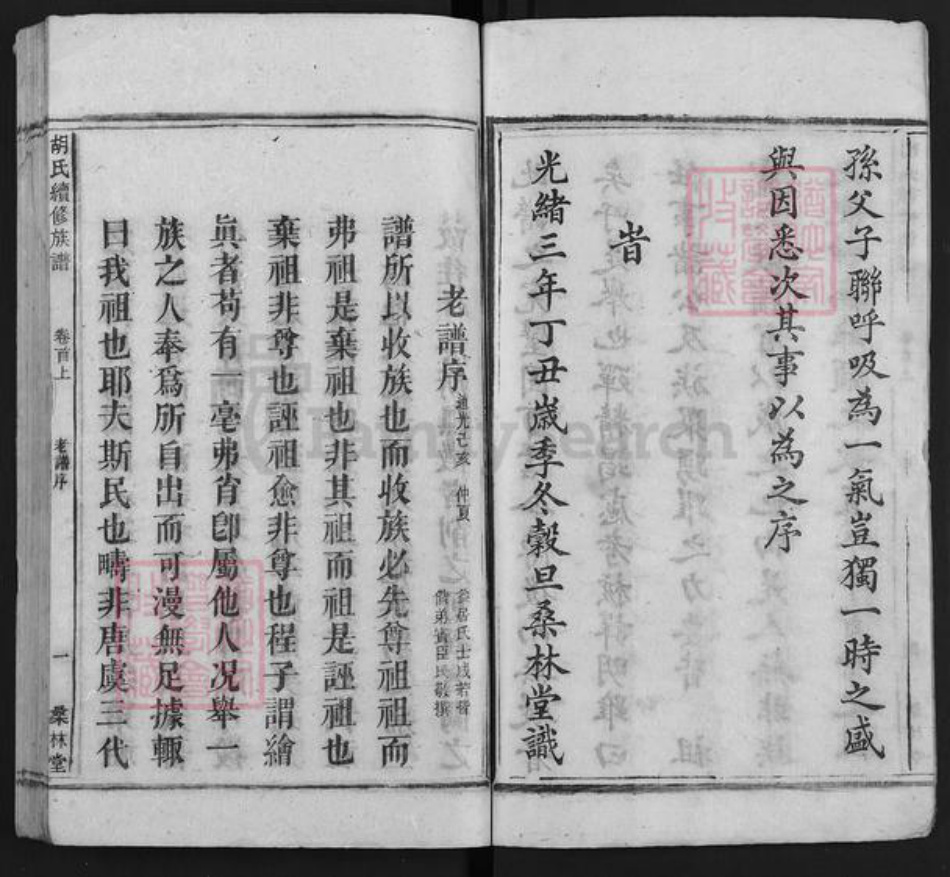 孫父子聯呼吸為一氣豈獨一時之盛
與因悉次其事以為之序
旹
光緒三年丁丑歲季冬穀旦桑林堂識
老譜序
道光己亥 仲夏
譜所以收族也而收族必先尊祖祖而
弗祖是棄祖也非其祖而祖是誣祖也
棄祖非尊也誣祖愈非尊也程子謂繪
眞者苟有一毫弗肖卽屬他人况舉一
族之人奉爲所自出而可漫無足據輒
曰我祖也耶夫斯民也疇非唐虞三代
胡氏續修族譜
卷首上
老譜序
一
桑林堂
FamilySearch